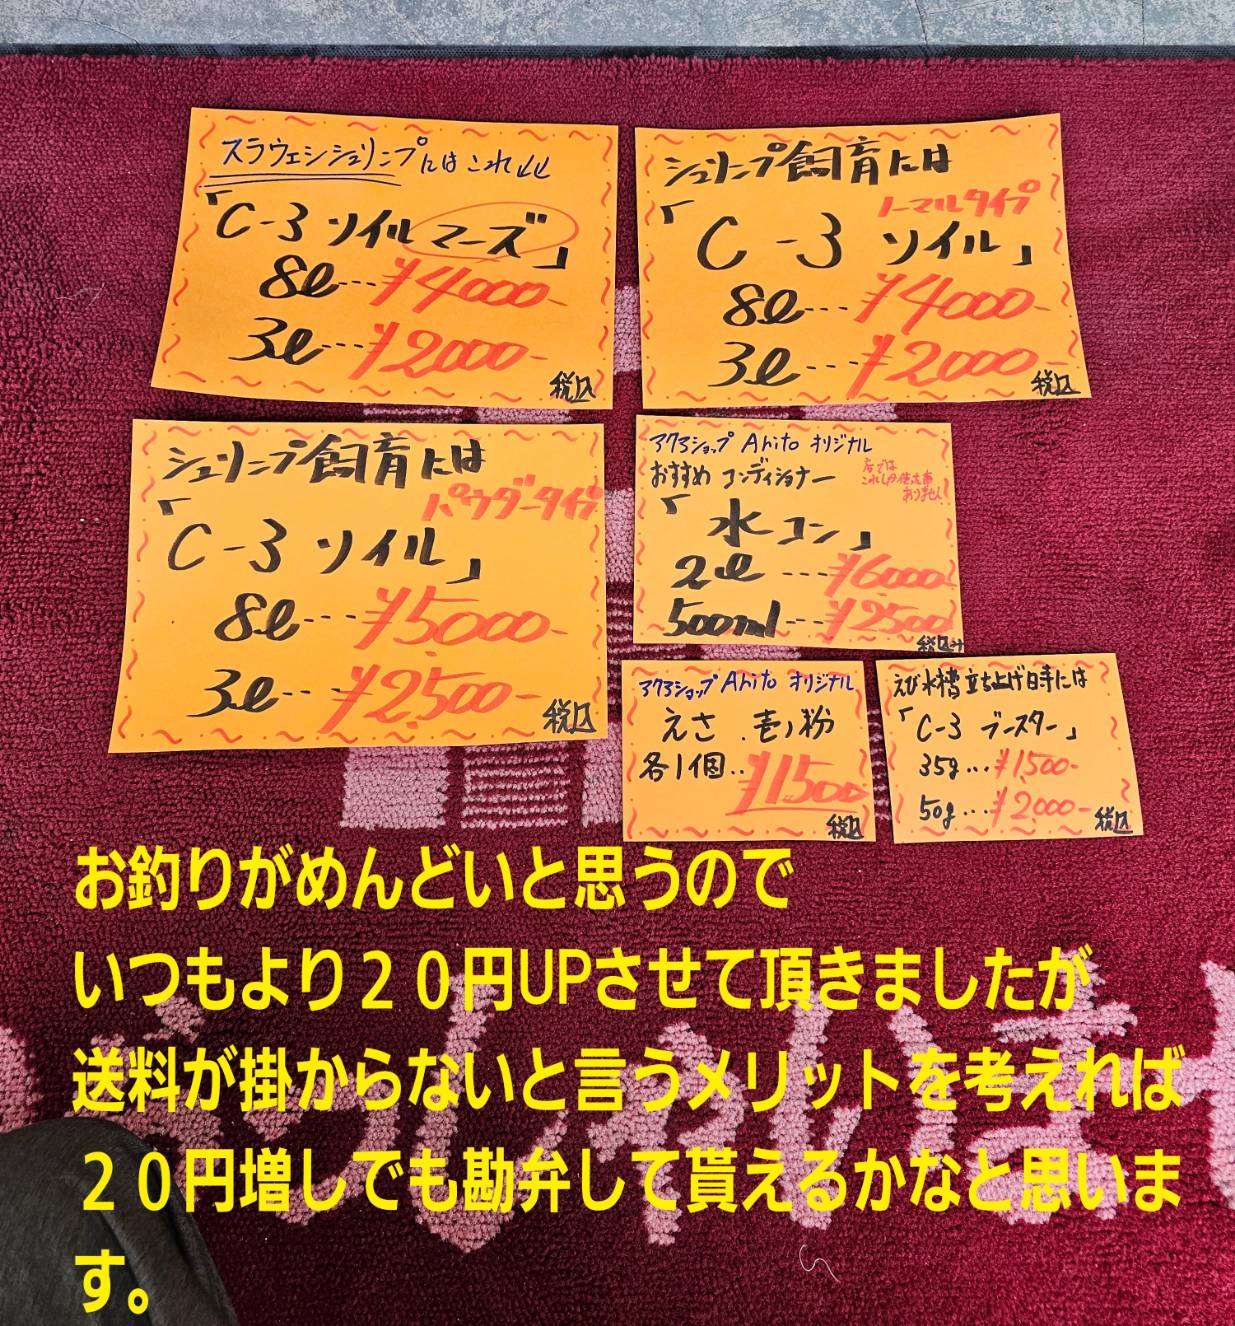 スラウェシシュリンプにはこれ↓↓
「C-3 ソイルマーズ」
8ℓ…¥4000-
3ℓ…¥2000-
税込
シュリンプ飼育には
ノーマルタイプ
「C-3 ソイル」
8ℓ…¥4000-
3ℓ…¥2000-
税込
シュリンプ飼育には
パウダータイプ
「C-3 ソイル」
8ℓ…¥5000-
3ℓ…¥2,500-
税込
アクアショップ Ahito オリジナル
おすすめ コンディショナー
店では
これしか使た事
ありません
「水コン」
2ℓ…¥6000-
500ml…¥2500
税込み
アクアショップ Ahito オリジナル
えさ 壱ノ粉
各1個‥¥1500-
税込
えび水槽立ち上げ時には
「C-3 ブースター」
35g…¥1,500-
50g…¥2,000-
税込
お釣りがめんどいと思うので
いつもより２０円UPさせて頂きましたが
送料が掛からないと言うメリットを考えれば
２０円増しでも勘弁して貰えるかなと思いま
す。